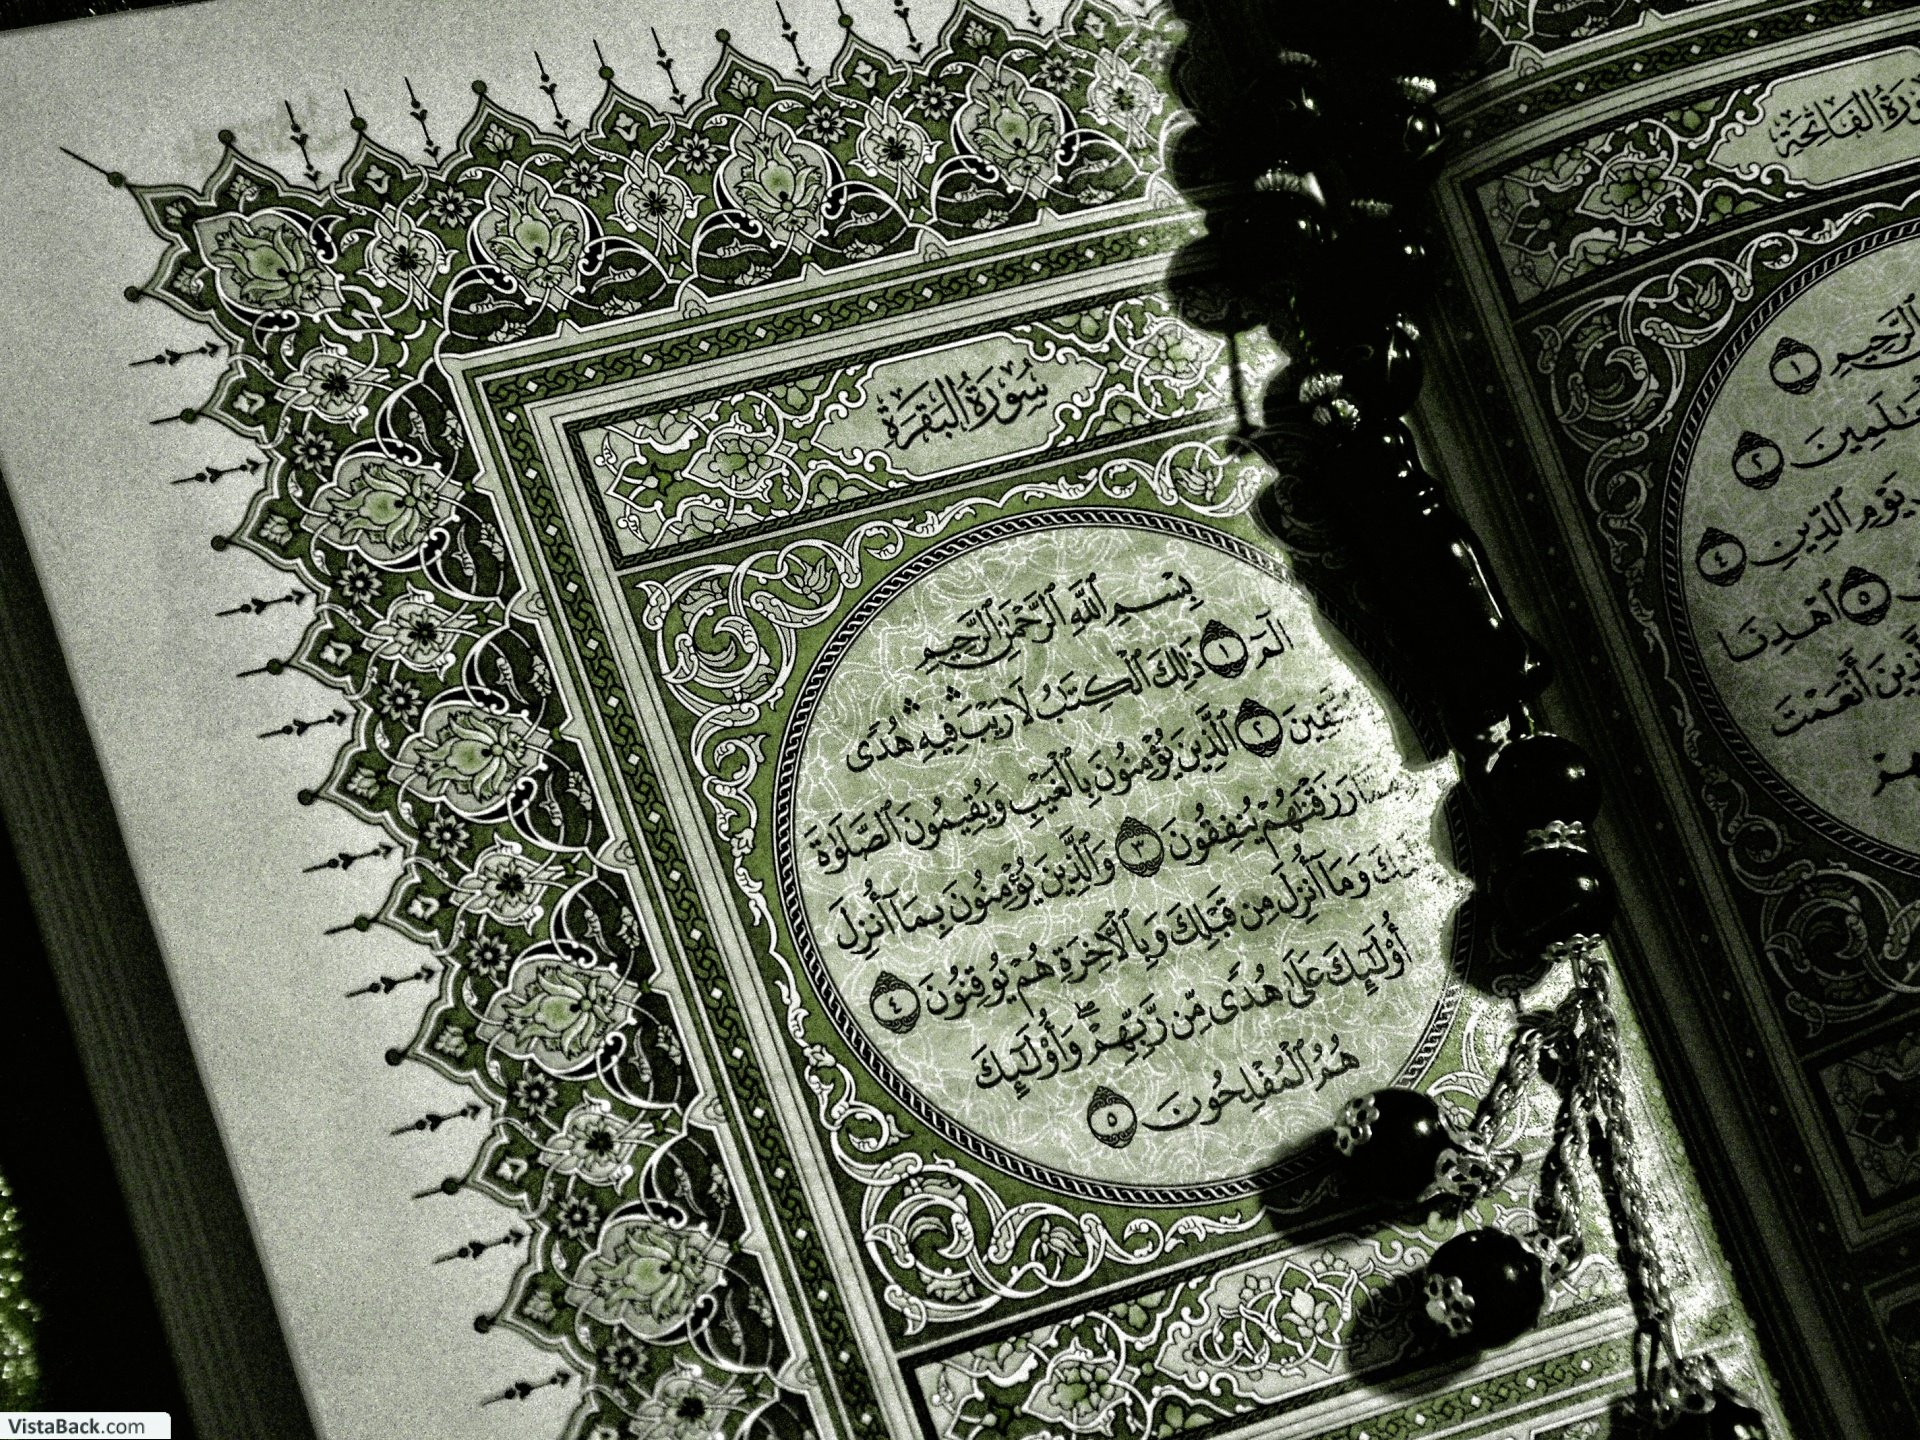 سُورَةُ الفَاتِحَةِ
ٱلرَّحِيمِ ١
ٱلْعَٰلَمِينَ ٢
يَوْمِ ٱلدِّينِ ٤
٥ ٱهْدِنَا
أَنْعَمْتَ
سُورَةُ البَقَرَةِ
بِسْمِ ٱللَّهِ ٱلرَّحْمَٰنِ ٱلرَّحِيمِ
الٓمٓ ١ ذَٰلِكَ ٱلْكِتَٰبُ لَا رَيْبَ ۛ فِيهِ ۛ هُدًى
ٱلَّذِينَ يُؤْمِنُونَ بِٱلْغَيْبِ وَيُقِيمُونَ ٱلصَّلَوٰةَ ٢
رَزَقْنَٰهُمْ يُنفِقُونَ ٣ وَٱلَّذِينَ يُؤْمِنُونَ بِمَآ أُنزِلَ
وَمَآ أُنزِلَ مِن قَبْلِكَ وَبِٱلْءَاخِرَةِ هُمْ يُوقِنُونَ ٤
أُو۟لَٰٓئِكَ عَلَىٰ هُدًى مِّن رَّبِّهِمْ ۖ وَأُو۟لَٰٓئِكَ
هُمُ ٱلْمُفْلِحُونَ ٥
VistaBack.com